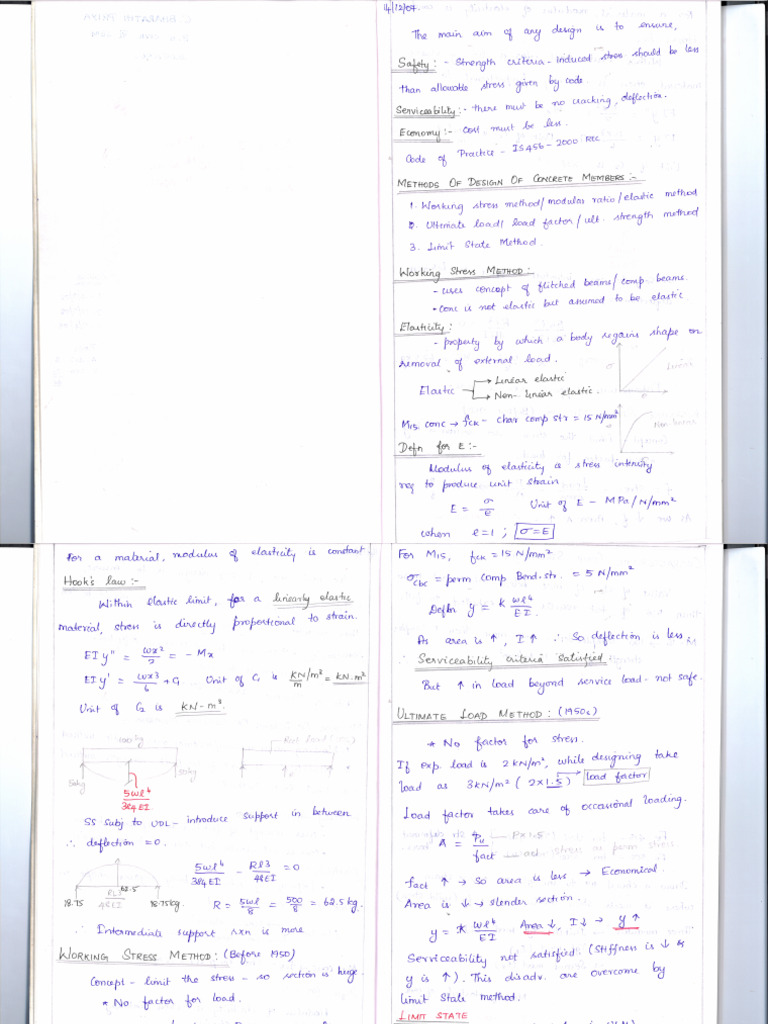 14/12/07
The main aim of any design is to ensure,
Safety :- Strength criteria - induced stress should be less
than allowable stress given by code.
Serviceability :- there must be no cracking, deflection.
Economy :- Cost must be less.
Code of Practice - IS 456 - 2000 RCC
METHODS OF DESIGN OF CONCRETE MEMBERS :-
1. Working stress method/modular ratio/elastic method
2. Ultimate load/ load factor/ult. strength method
3. Limit State Method.
WORKING STRESS METHOD :
- uses concept of flitched beams/comp beams.
• Conc is not elastic but assumed to be elastic
Elasticity :
- property by which a body regains shape on
removal of external load.
Elastic → Linear elastic
→ Non-linear elastic.
σ
Linear
M15 conc → fck - char comp str = 15 N/mm²
Defn for E :-
Modulus of elasticity is stress intensity
req to produce unit strain
E = σ/e Unit of E - MPa/N/mm²
when e=1 ; σ=E
For a material, modulus of elasticity is constant.
Hook's law :-
Within elastic limit, for a linearly elastic
material, stress is directly proportional to strain.
EI y" = wx²/2 = - Mx
EI y' = wx3/6 + C1 Unit of C1 is kN/m²/m = kN.m²
Unit of C2 is kN-m³
100kg
50kg
50kg
5wl⁴/384EI
SS subj to UDL - introduce support in between
∴ deflection = 0.
18.75
Rl3/48EI
62.5
18.75kg
5wl⁴/384EI - Rl3/48EI = 0
R = 5wl/8 = 500/8 = 62.5 kg.
∴ Intermediate support rxn is more.
WORKING STRESS METHOD : (Before 1950)
Concept - limit the stress - so section is huge.
* No factor for load.
For M15, fck = 15 N/mm²
σcbc = perm comp Bend. str. = 5 N/mm²
Defln y = k wl⁴/EI
As area is ↑, I ↑ ∴ So deflection is less
∴ Serviceability criteria satisfied
But ↑ in load beyond service load - not safe.
ULTIMATE LOAD METHOD : (1950s)
* No factor for stress.
If exp. load is 2 kN/m², while designing take
load as 3kN/m² (2x1.5) → load factor
Load factor takes care of occasional loading.
A = Pu/fact — Px1.5
fact ↑ → So area is less → Economical
Area is ↓ → slender section.
y = k wl⁴/EI Area ↓, I↓ → y ↑
Serviceability not satisfied (Stiffness is ↓ &
y is ↑). This disadv. are overcome by
limit state method.
LIMIT STATE